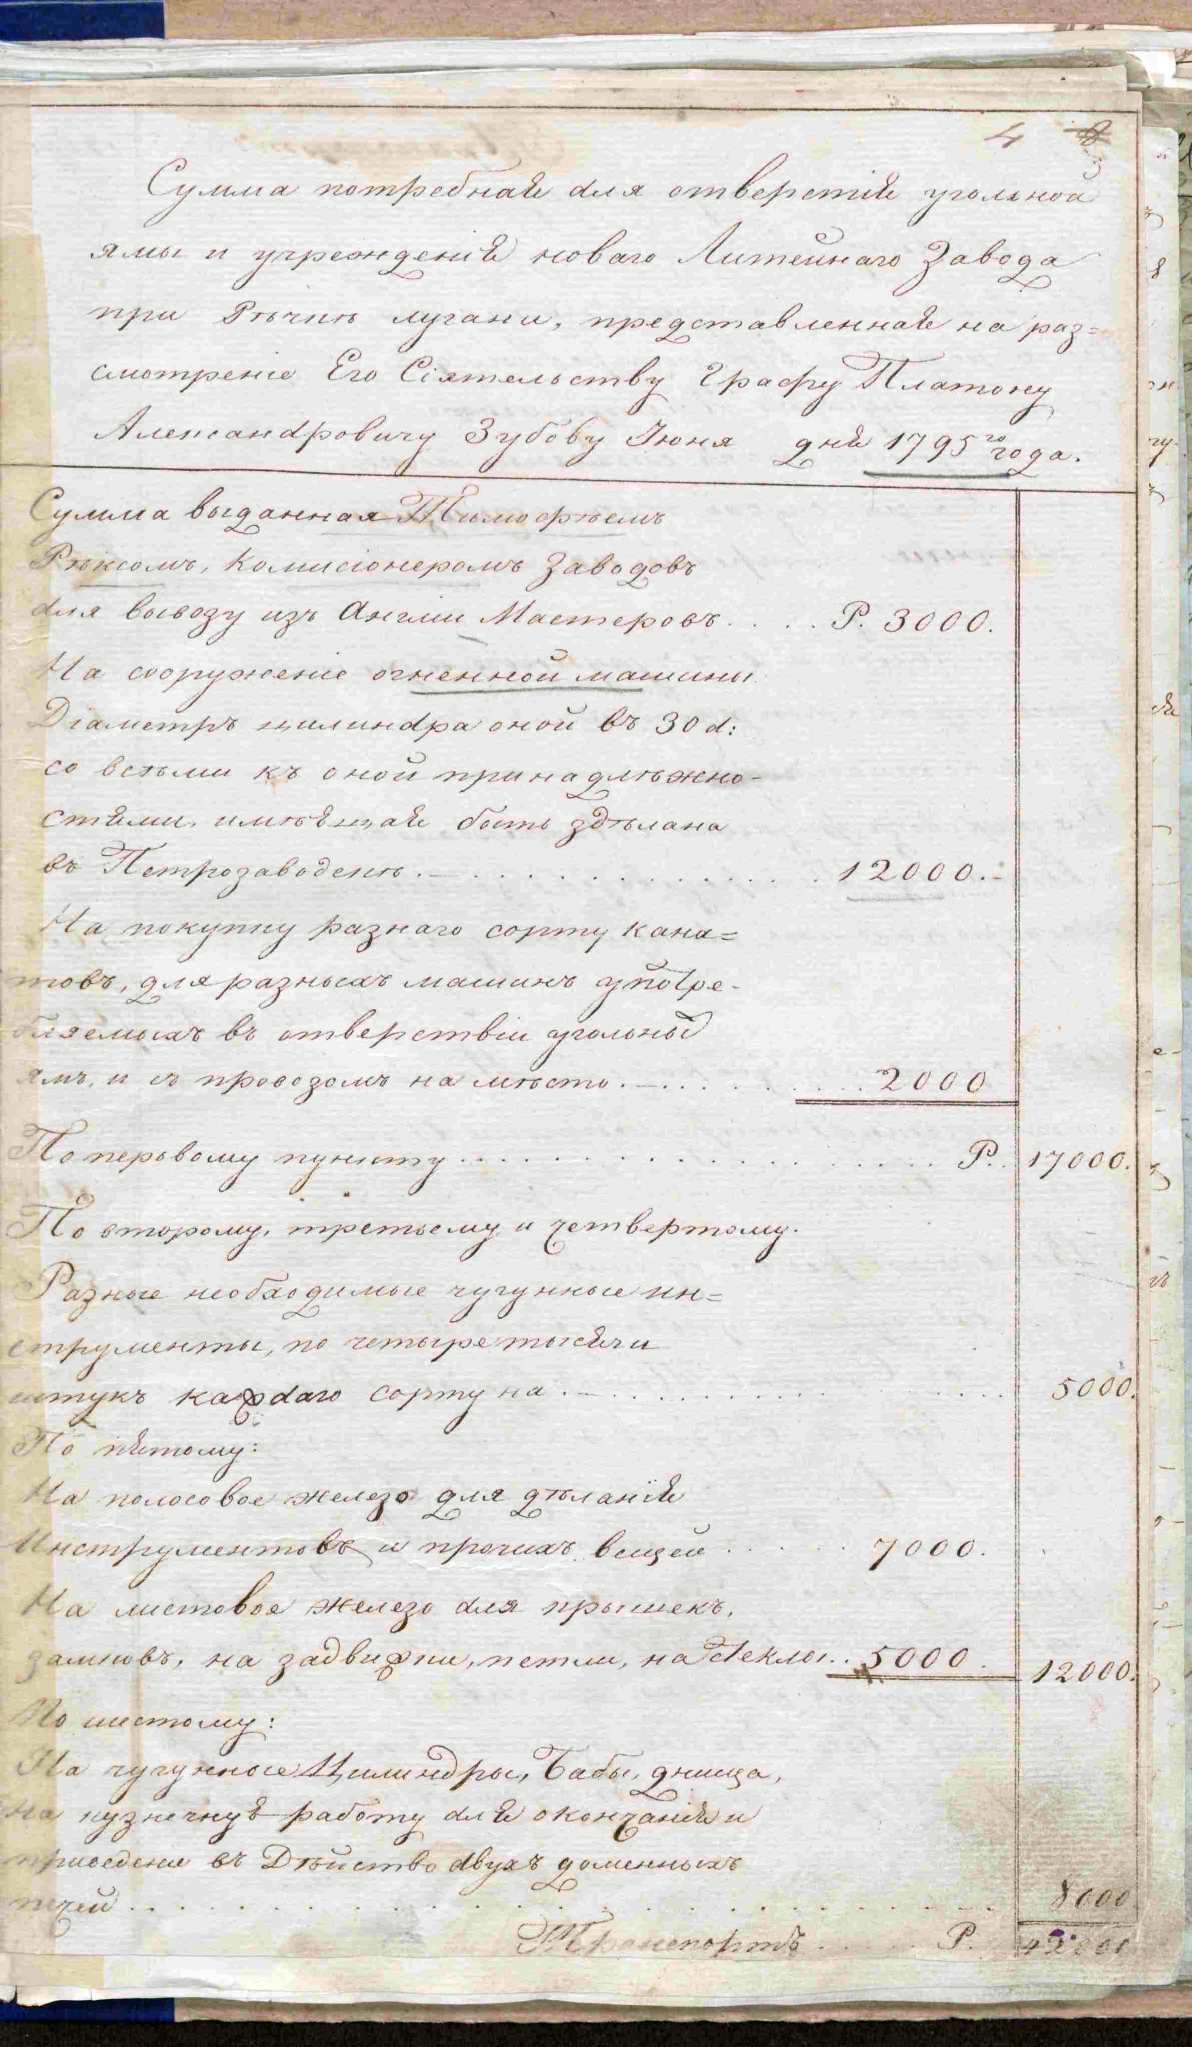 4
Сумма потребная для отверстія угольной
ямы и учрежденія новаго Литейнаго Завода
при Рѣчкѣ лугани, представленная на раз=
смотреніе Его Сіятельству Графу Платону
Александровичу Зубову Іюня дня 1795го года.
Сумма выданная Тимофѣемъ
Рѣксомъ, Комисіонеромъ Заводовъ
для вывозу изъ Англіи Мастеровъ . . . . Р. 3000.
На сооруженіе огненной машины
Діаметръ цилиндра оной въ 30 d:
со всѣми къ оной принадлѣжно-
стями, имѣющая быть здѣлана
въ Петрозаводскѣ . . . . . . . . . . 12000.
На покупку разнаго сорту кана=
товъ, для разныхъ машинъ употре-
бляемыхъ въ отверствіи угольный
ямъ, и съ провозомъ на мѣсто . . . . . . . 2000
По первому пункту . . . . . . . . . . . . Р. 17000.
По второму, третьему и четвертому.
Разные необходимые чугунные ин=
струменты, по четыре тысячи
штукъ каждаго сорту на . . . . . . . . . . 5000.
По пятому:
На полосовое железо для дѣланія
Инструментовъ и прочихъ вещей . . . . . 7000.
На листовое железо для крышекъ,
замковъ, на задвижки, петли, на стеклы . . 5000. 12000.
По шестому:
На чугунные Цилиндры, Бабы, днища,
на кузнечную работу для окончанія и
приведеніе въ Дѣйство двухъ доменныхъ
печей . . . . . . . . . . . . . . . . 8000
Транспортъ . . . . . Р. 42000